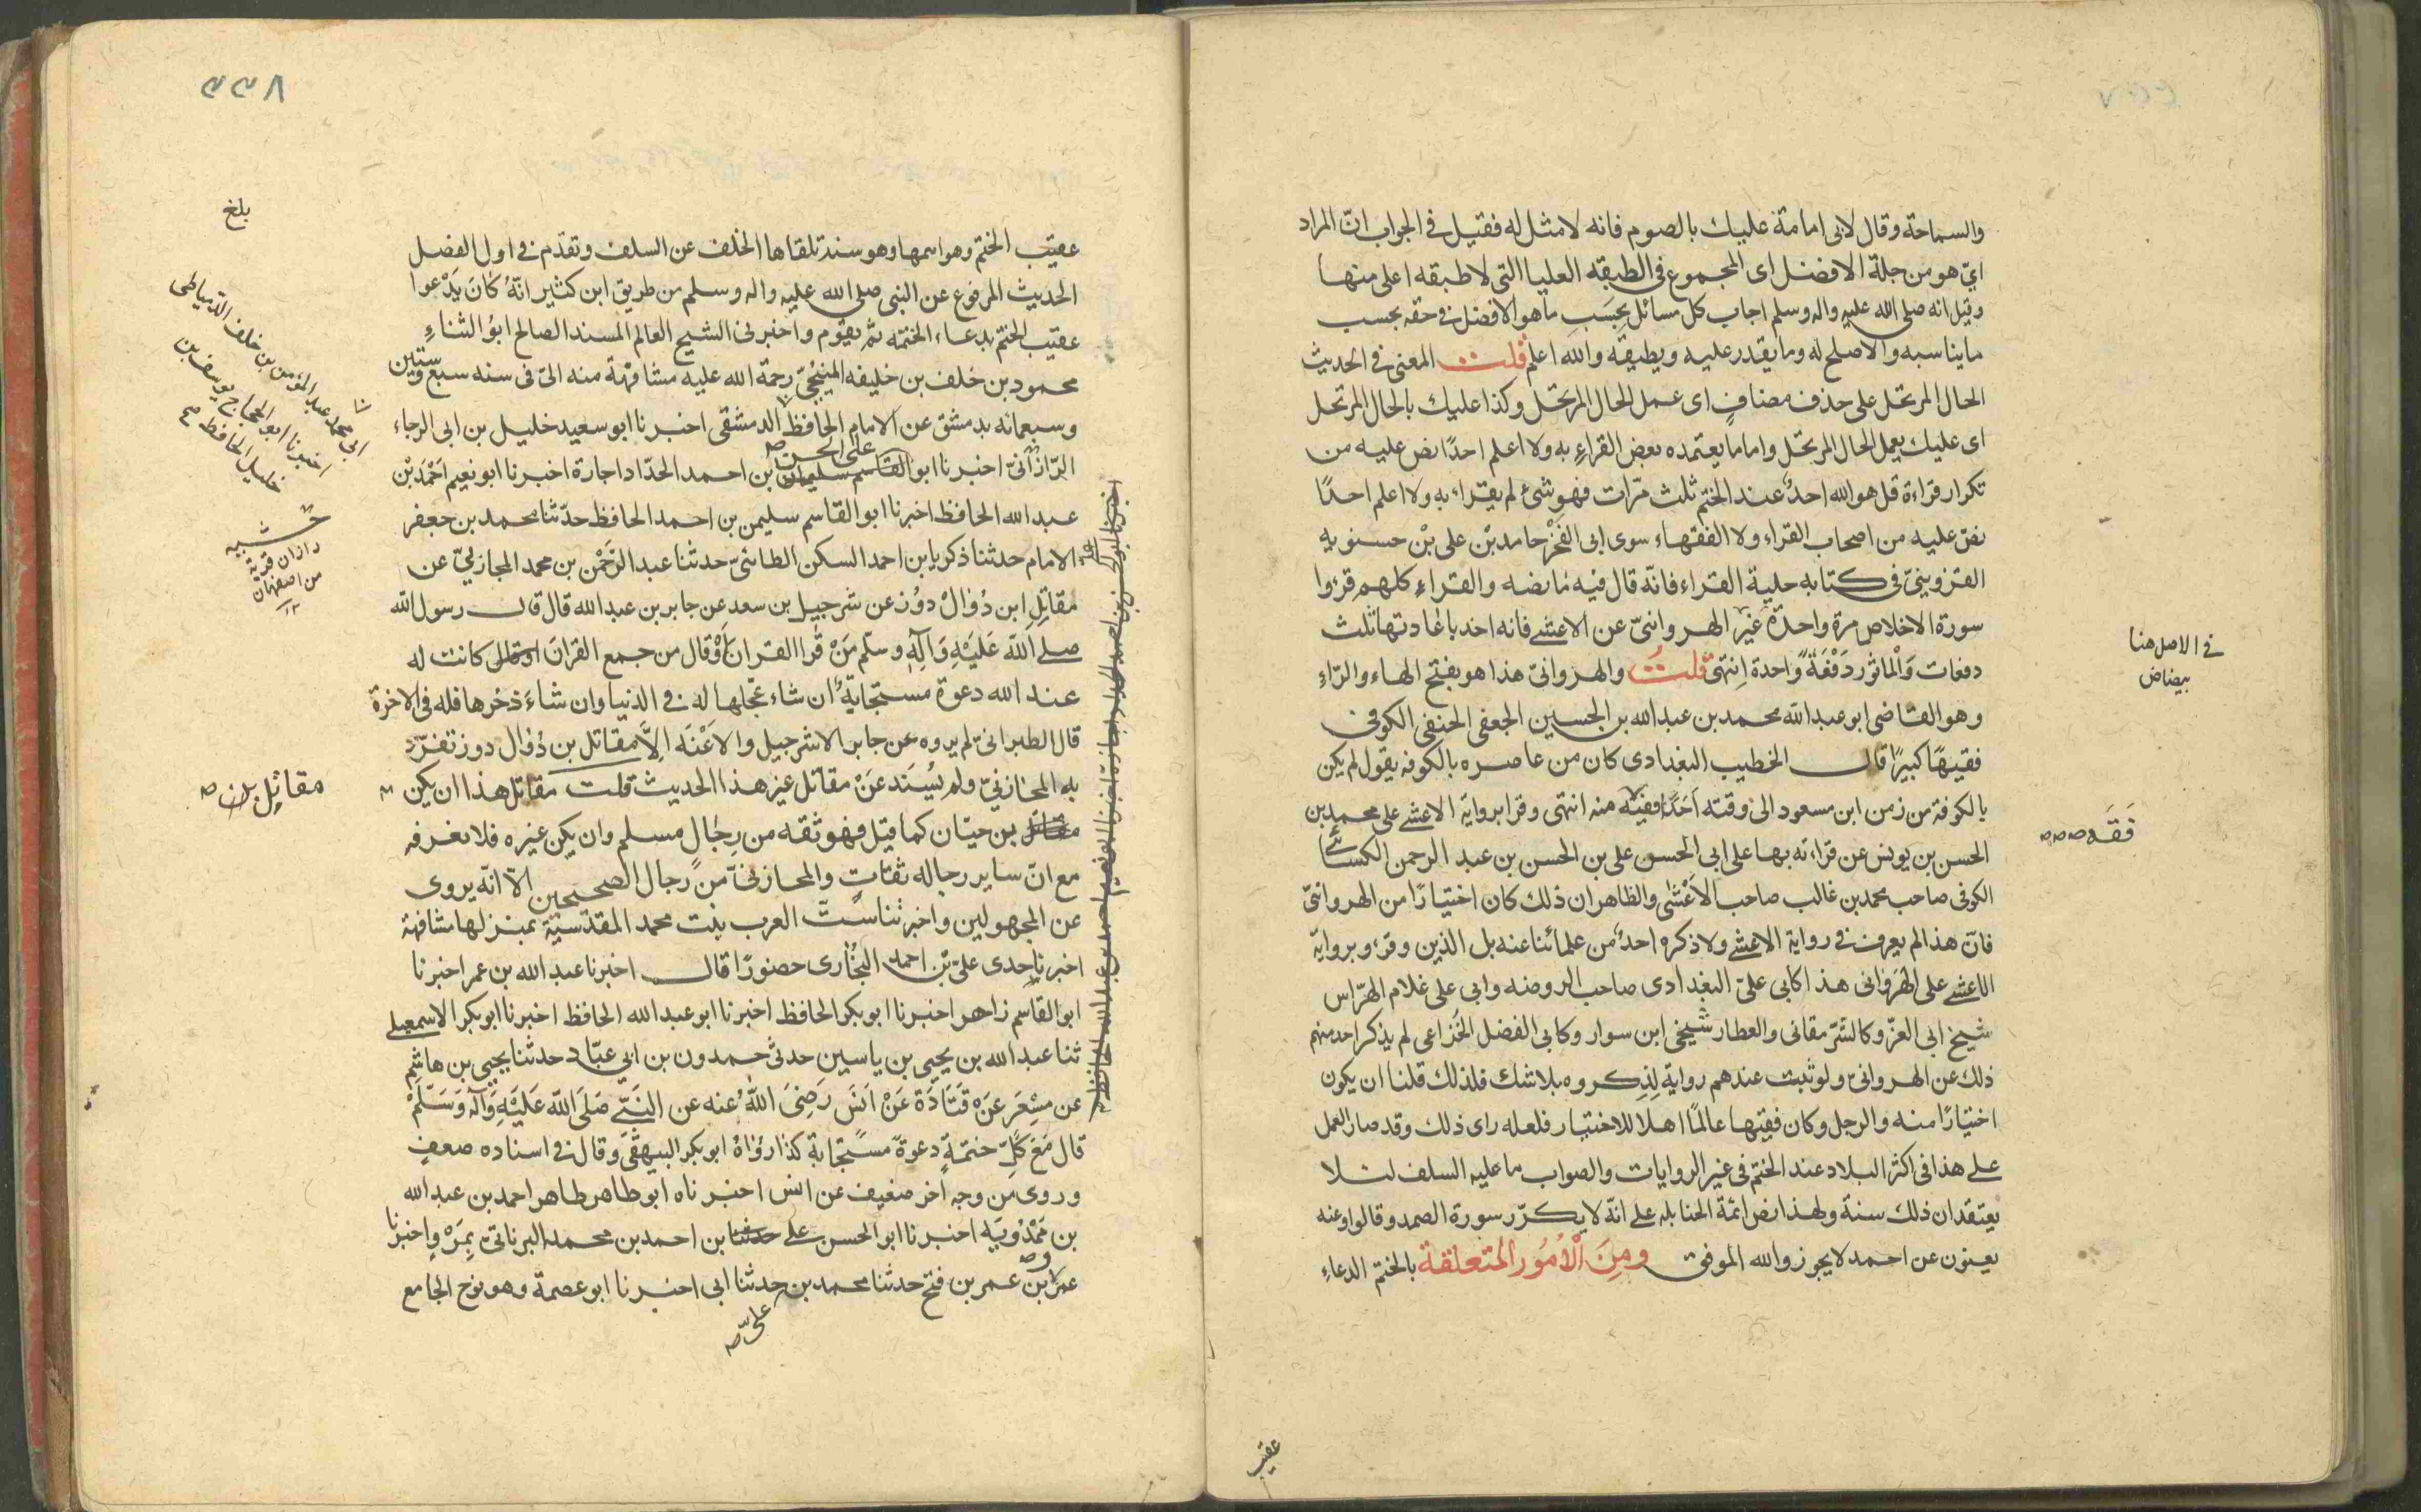 والسماحة وقال لابى امامة عليك بالصوم فانه لا مثل له فقيل فى الجواب انّ المراد
اىّ هو من جملة الافضل اى المجموع فى الطبقه العليا التى لا طبقه اعلى منها
وقيل انه صلى الله عليه واله وسلم اجاب كل مسائل بِحَسَبِ ما هو الافضل فى حقه بحسب
ما يناسبه والاصلح له وما يقدر عليه ويطيقه والله اعلم قلت المعنى فى الحديث
الحال المرتحل على حذف مضافٍ اى عمل الحال المرتحل وكذا عليك بالحال المرتحل
اى عليك بعمل الحال المرتحل واما ما يعتمده بعض القراءِ به ولا اعلم احدًا نص عليه من
تكرار قراءة قل هو الله احدٌ عند الختم ثلث مرّات فهو شئ لم يقراء به ولا اعلم احدًا
نصّ عليه من اصحاب القراء ولا الفقهاء سوى ابى الفخْر حامد بْن على بْن حسنويه
القزوينىّ فى كتابه حلية القراء فانّه قال فيه ما نصه والقراءِ كلهم قرؤا
سورة الاخلاص مرة واحدة غير الهروانىّ عن الاعشى فانه اخذ باعادتها ثلث
دفعات وَالْماثور دَفْعَةً وَّاحدة اِنتهىٰ قلت والهروانىّ هذا هو بفتح الهاء والرّاءِ
وهو القاضى ابو عبد الله محمد بن عبد الله بن الحسين الجعفى الحنفى الكوفى
فقيهًا كبيرًا قال الخطيب البغدادى كان من عاصره بالكوفه يقول لم يكن
بالكوفة من زمن ابن مسعود الى وقته اَحَدًا فقيه منه انتهى وقرا برواية الاعشى على محمد بن
الحسن بن يونس عن قراءته بها على ابى الحسن على بن الحسن بن عبد الرحمن الكسائىّ
الكوفى صاحب محمد بن غالب صاحب الاَعْشى والظاهر ان ذلك كان اختيارًا من الهروانىّ
فانّ هذا لم يعرف فى رواية الاعشى ولا ذكره احدٌ من علمائنا عنه بل الذين وقرؤ برواية
الاعشى على الهَروانى هذا كابى علىّ البغدادى صاحب الروضه وابى على غلام الهرّاس
شيخ ابى العزّ وكالشرّمقانى والعطار شيخى ابن سوار وكابى الفضل الخزاعى لم يذكر احد منهم
ذلك عن الهروانى ولو ثبت عندهم رواية لذِكروه بلا شك فلذلك قلنا ان يكون
اختيارًا منه والرجل وكان فقيها عالمًا اهلا للاختيار فلعله راى ذلك وقد صار العمل
على هذا فى اكثر البلاد عند الختم فى غير الروايات والصواب ما عليه السلف لئلا
يعتقد ان ذلك سنة ولهذا نص ائمة الحنابله على انّه لا يكرّر سورة الصمد وقالوا وعنه
يعنون عن احمد لا يجوز والله الموفق ومِنَ الْاُمُور المتعلقة بالختم الدعاءِ
فى الاصل هنا
بيضاض
فَقَه صصص
عقيب
٢٢٨
بلغ
عقيب الختم وهو اسمها وهو سنة تلقاها الخلف عن السلف وتقدم فى اول الفضل
الحديث المرفوع عن النبى صلى الله عليه واله وسلم من طريق ابن كثير انّهُ كانَ يَدْعوا
عقيب الختم بدعاء الختمه ثم يقوم واخبرنى الشيخ العالم المسند الصالح ابوُ الثناءِ
محمود بن خلف بن خليفه المنبجىّ رحمة الله عليه مشافهة منه الىّ فى سنه سبع وستين
وسبعمائه بدمشق عن الامام الحافظ الدمشقى اخبرنا ابو سعيد خليل بن ابى الرجاء
الرّازانىّ اخبرنا ابو القاسم سليمان بن احمد الحدّاد اجازة اخبرنا ابو نعيم اَحْمَد بْن
على الحسن ص
عبد الله الحافظ اخبرنا ابو القاسم سليمن بن احمد الحافظ حدّثنا محمد بن جعفر
الامام حدثنا ذكريا بن احمد السكن الطائىّ حدثنا عبد الرَّحْمٰن بن محمد المجازلىّ عن
مقاتِلِ ابن دُوالْ دوُز عن شرجبيل بن سعد عن جابر بن عبد الله قال قال رسول الله
صلى اللهَ عَليْهِ وَآلِهِ وسلّم مَنْ قرا القران اوْقال من جمع القران كانت له
عند الله دعوة مستجابةٌ ان شاء عجّلها له فى الدنيا وان شاءَ ذخرها فله فى الاخرة
قال الطبرانىّ لم يروه عن جابر الا شرجبيل ولا عَنْه اِلاَّ مقاتل بن دُوال دوز تفرّد
به المحازنىّ ولم يُسْنَد عنْ مقاتل غير هذا الحديث قلت مقاتل هذا ان يكن
بن حيّان كما قيل فهو ثقه من رِجٰال مسلم وان يكن غيره فلا نعرفه
مع انّ ساير رجاله ثقات والمحازنىّ من رجال الصحيحين الّا انّه يروى
عن المجهولين واخبرتنا ستّ العرب بنت محمد المقدسيّة بمنزلها مشافهة
اخبرنا جدى علىّ بْن احمد البُخٰارى حضورًا قال اخبرنا عبد الله بن عمر اخبرنا
ابو القاسم زاهر اخبرنا ابو بكر الحافظ اخبرنا ابو عبد الله الحافظ اخبرنا ابو بكر الاسمعيلى
ثنا عبد الله بن يحيى بن ياسين حدثنى حمدون بن ابى عبّاد حدثنا يحيى بن هاشم
عن مِسْعَر عنْ قَتَادَة عَنْ اَنَس رَضِىَ اللهُ عنه عن النَبّىّ صَلىَ الله عَليْهِ وَآلِه وَسَلّمْ
قال مَعَ كُلِّ ختمةٍ دعوةٌ مسْتجابة كذا رَوٰاهُ ابو بكر البيهقىَ وقال فى اسناده ضعف
وروى من وجه آخر ضعيف عن انس اخبرناه ابو طاهر طاهر احمد بن عبد الله
بن مَمْدُويَه اخبرنا ابو الحسن على بن احمد بن محمد البرناتىّ بِمَرْو اخبرنا
عمرُ بن عمر بن فتح حدثنا محمد بن حدثنا ابى اخبرنا ابو عصمة وهو نوح الجامع
علىّ ص
ابى محمد عبد المؤمن بن خلف الدّمياطى
اخبرنا ابو الحجاج يوسف بن
خليل الحافظ ص
حشيه
رازان قرية
من اصفهان
١٢
مقاتِل بن ص